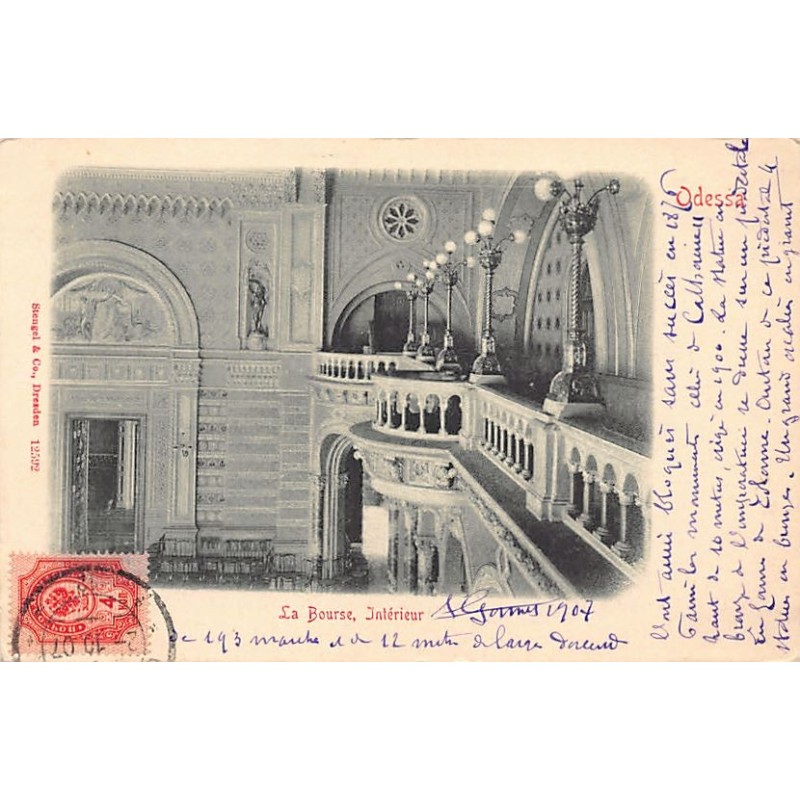 Odessa
Stengel & Co., Dresden 12592
La Bourse, Intérieur
1907
de 193 marche et de 12 metre de large descend
Ont aussi bloqués sans succès en 1876
Parmi les monuments celui de Catherine II
haut de 10 metres, érigé en 1900. La statue en
bronze de l'impératrice se dresse sur un piédestal
en forme de colonne. Autour de ce piédestal 4
statues en bronze. Un grand escalier en granit
4 коп
10 07